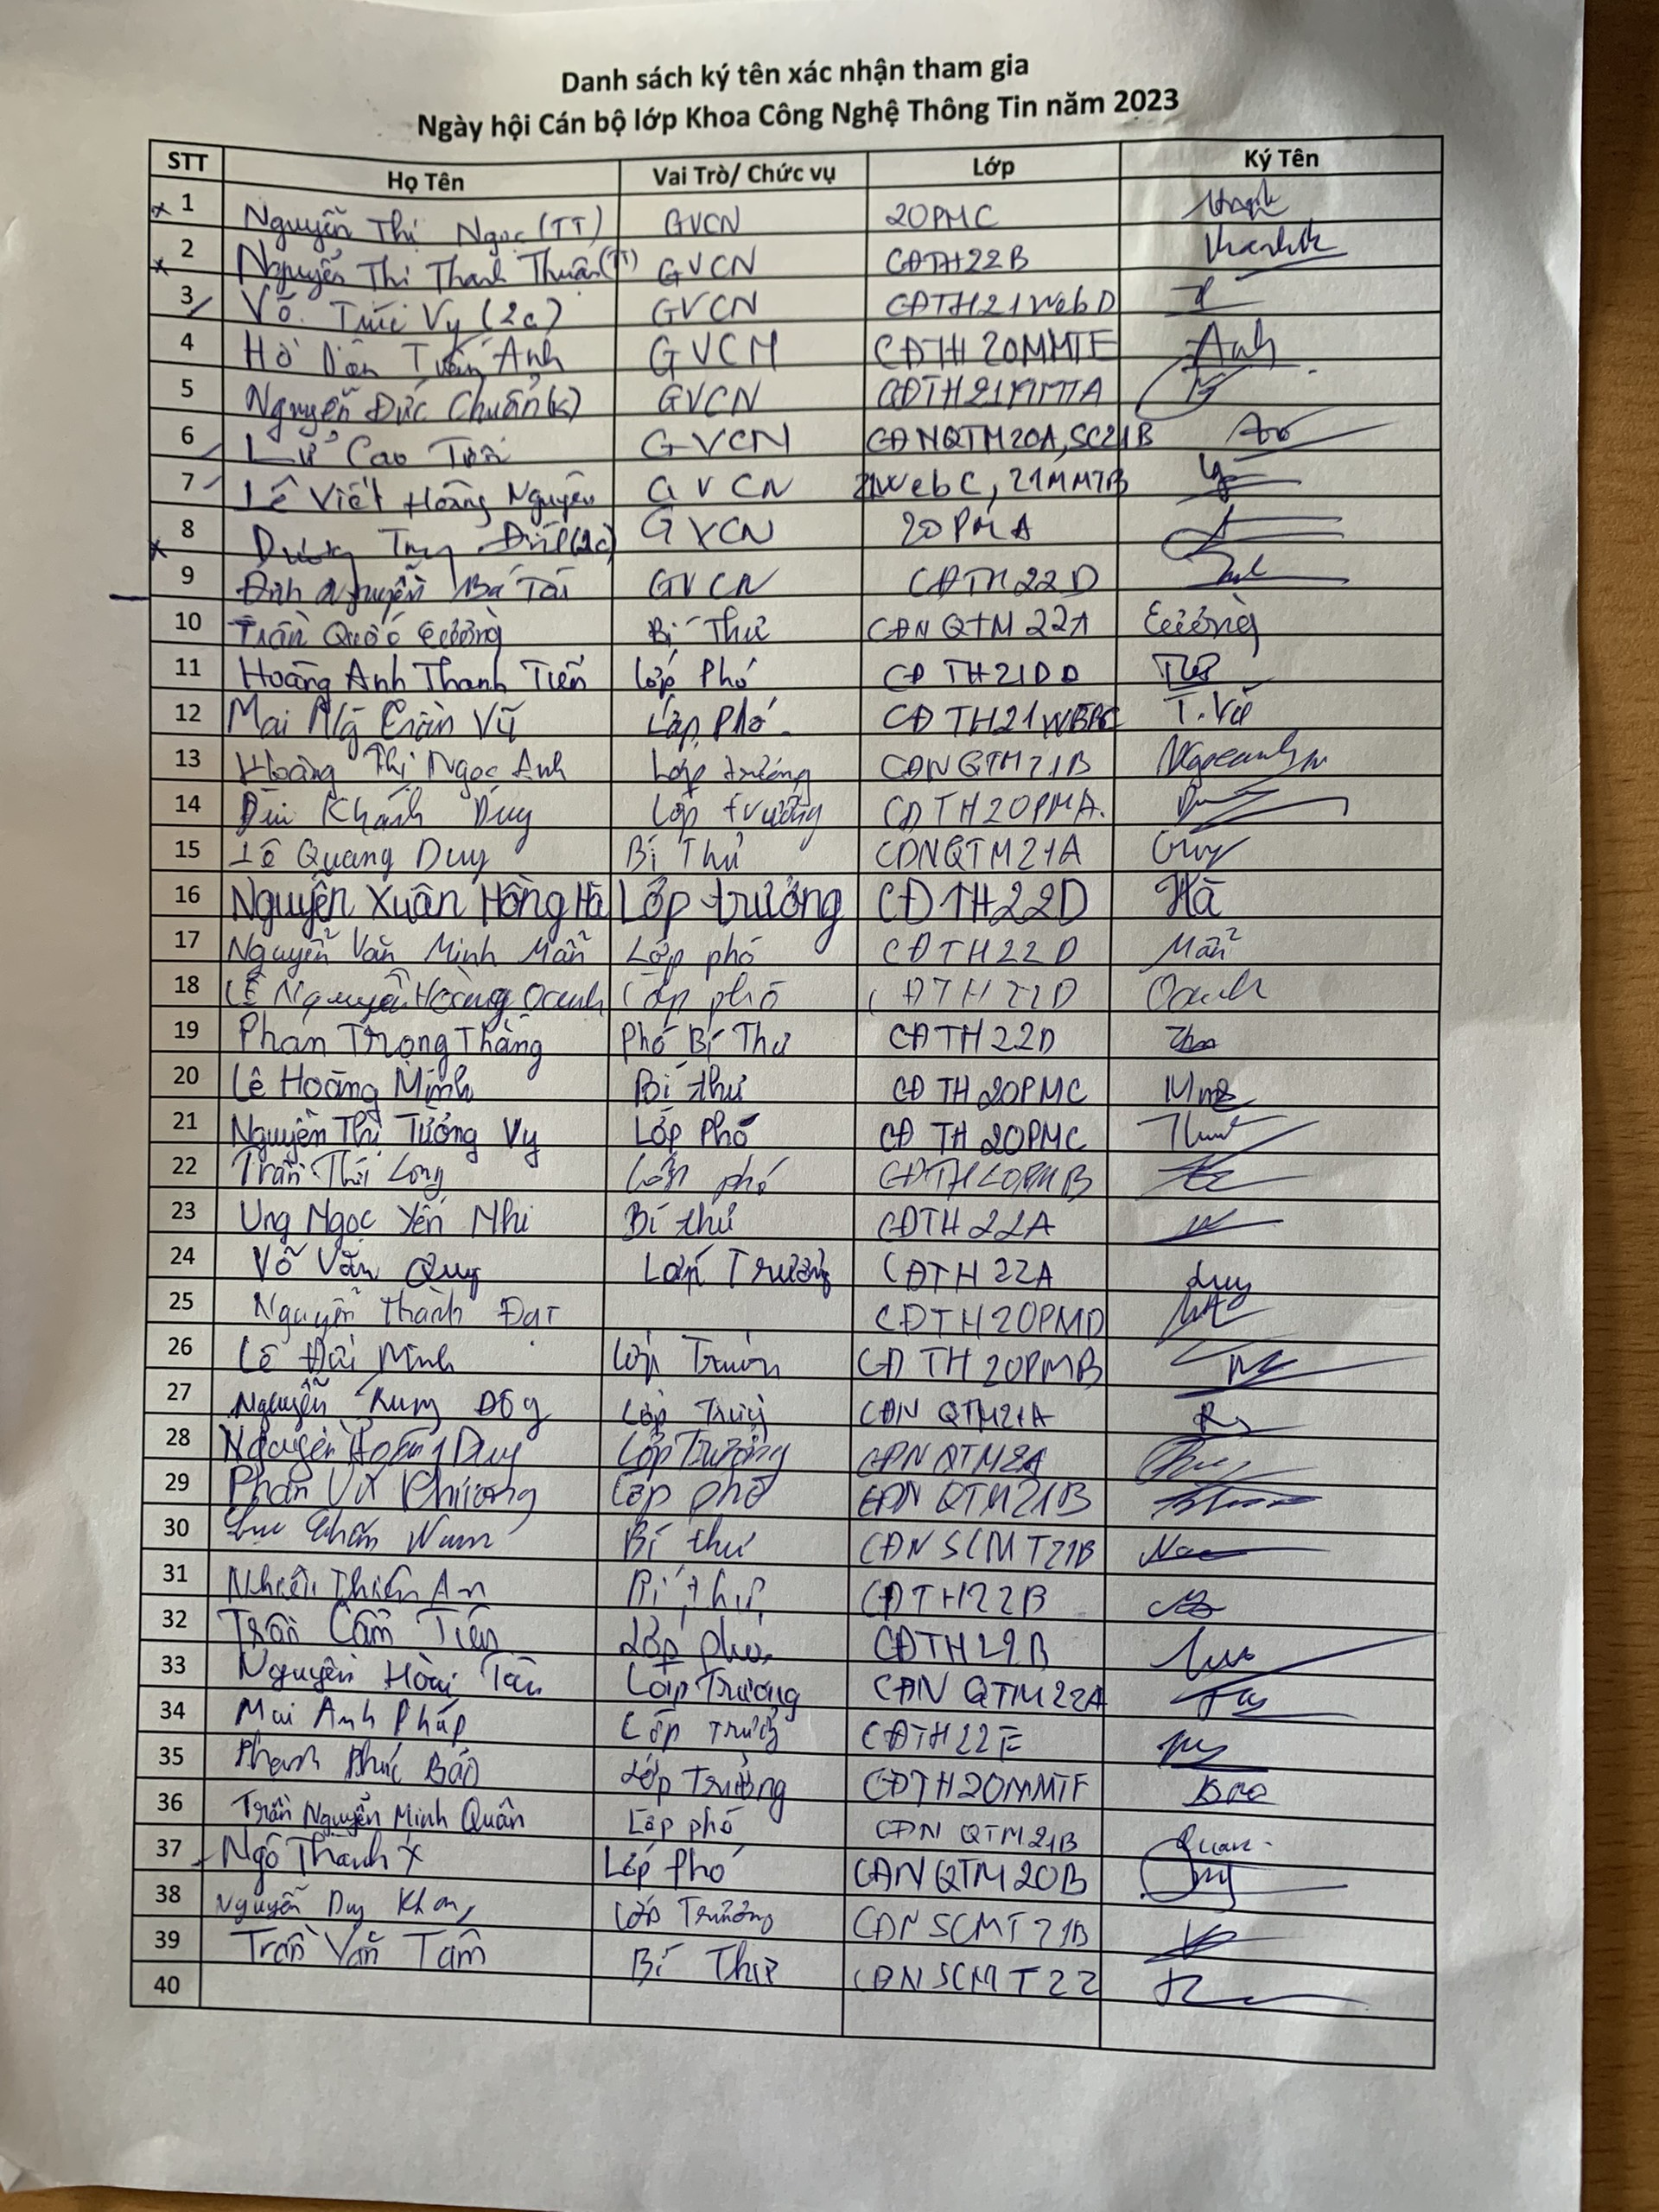 Danh sách ký tên xác nhận tham gia
Ngày hội Cán bộ lớp Khoa Công Nghệ Thông Tin năm 2023
STT Họ Tên Vai Trò/ Chức vụ Lớp Ký Tên
1 Nguyễn Thị Ngọc (TT) GVCN 20PMC
2 Nguyễn Thi Thanh Thuận (TT) GVCN CĐTH22B
3 Võ Trúc Vy (2c) GVCN CĐTH21WebD
4 Hồ Diên Tuấn Anh GVCN CĐTH20MMTE Anh
5 Nguyễn Đức Chuẩn (K) GVCN CĐTH21MMTA
6 Lữ Cao Tiến GVCN CĐNQTM20A, SC21B
7 Lê Viết Hoàng Nguyên GVCN 21WebC, 21MMTB
8 Dương Trọng Đính (2c) GVCN 20PMA
9 Đinh Nguyễn Bá Tài GVCN CĐTH22D
10 Trần Quốc Cường Bí Thư CĐNQTM22A Cường
11 Hoàng Anh Thanh Tiến Lớp Phó CĐTH21DD
12 Mai Trần Vũ Lớp Phó CĐTH21WEBC T.Vũ
13 Hoàng Thị Ngọc Anh Lớp trưởng CĐNQTM21B Ngocanh
14 Bùi Khánh Duy Lớp trưởng CĐTH20PMA.
15 Lê Quang Duy Bí Thư CĐNQTM21A Duy
16 Nguyễn Xuân Hồng Hà Lớp trưởng CĐTH22D Hà
17 Nguyễn Văn Minh Mẫn Lớp phó CĐTH22D Mẫn
18 Lê Nguyễn Hoàng Oanh Lớp phó CĐTH22D Oanh
19 Phan Trọng Thắng Phó Bí Thư CĐTH22D
20 Lê Hoàng Minh Bí thư CĐTH20PMC
21 Nguyễn Thị Tường Vy Lớp Phó CĐTH20PMC
22 Trần Thái Long Lớp phó CĐTH20PMB
23 Ung Ngọc Yến Nhi Bí thư CĐTH22A
24 Võ Văn Quy Lớp Trưởng CĐTH22A Quy
25 Nguyễn Thành Đạt CĐTH20PMD
26 Lê Đại Minh Lớp Trưởn CĐTH20PMB
27 Nguyễn Lớp CĐNQTM21A
28 Nguyễn Hoàng Duy Lớp Trưởng
29 Phan Vũ Phương Lớp phó CĐNQTM21B
30 Chấn Nam Bí thư CĐNSCMT21B
31 Thiên An Bí thư CĐTH22B
32 Trần Cẩm Tiên Lớp phó CĐTH22B
33 Nguyễn Hoài Tân Lớp Trưởng CĐNQTM22A
34 Mai Anh Pháp Lớp CĐTH22E
35 Phạm Phúc Bảo Lớp Trưởng CĐTH20MMTF Bảo
36 Trần Nguyễn Minh Quân Lớp phó CĐNQTM21B Quan
37 Ngô Thành Ý Lớp Phó CĐNQTM20B
38 Nguyễn Duy Lớp Trưởng CĐNSCMT21B
39 Trần Văn Tâm Bí Thư CĐNSCMT22
40